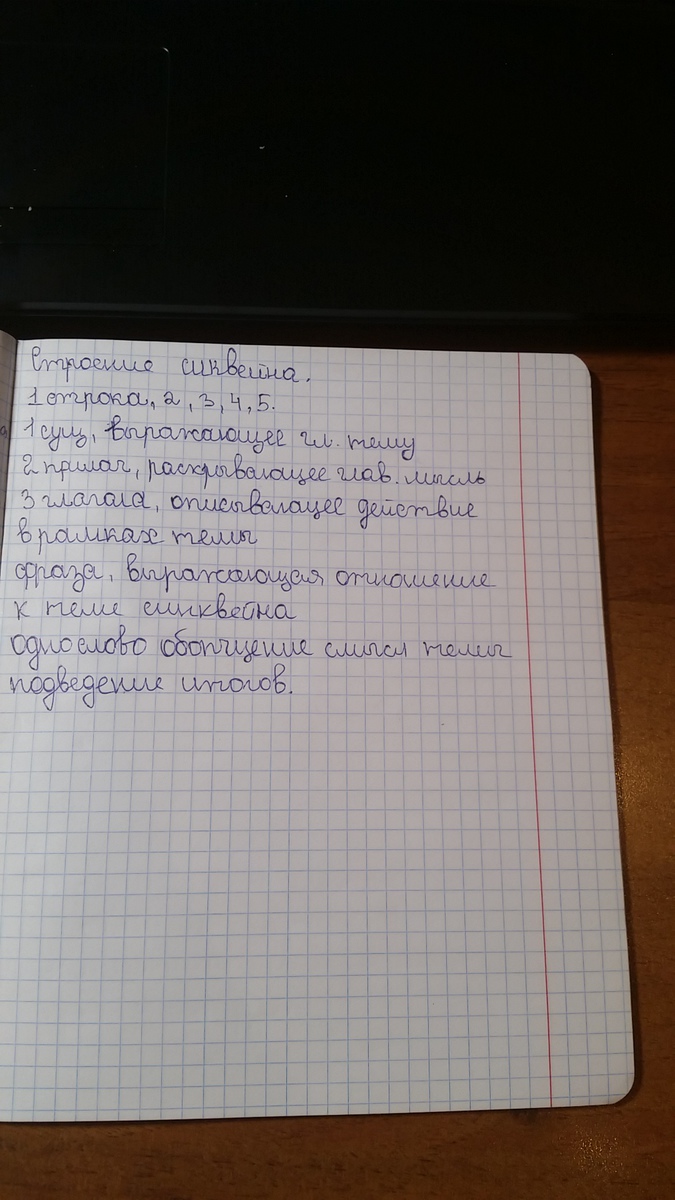 Строение синквейна.
1 строка, 2, 3, 4, 5.
1 сущ, выражающее гл. тему
2 прилаг, раскрывающее глав. мысль
3 глагола, описывающее действие
в рамках темы
фраза, выражающая отношение
к теме синквейна
одно слово обопщение смысл темы
подведение итогов.